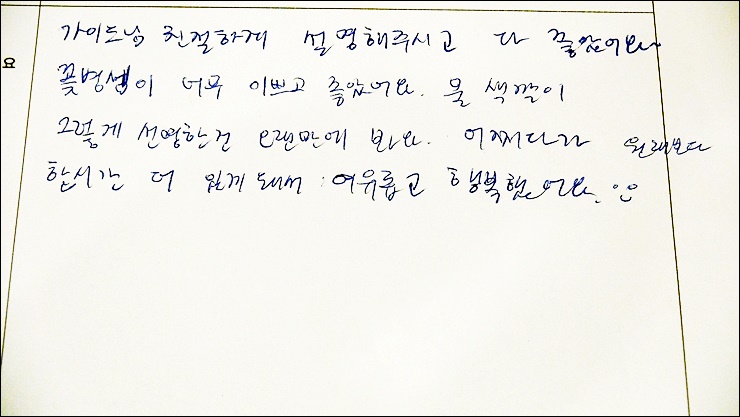 가이드님 친절하게 설명해주시고 다 좋았어요~
꽃병샘이 너무 이쁘고 좋았어요. 물 색깔이
그렇게 선명한건 오랜만에 봐요. 어찌다라 원래보다
한시간 더 있게 돼서 여유롭고 행복했어요. :)
요